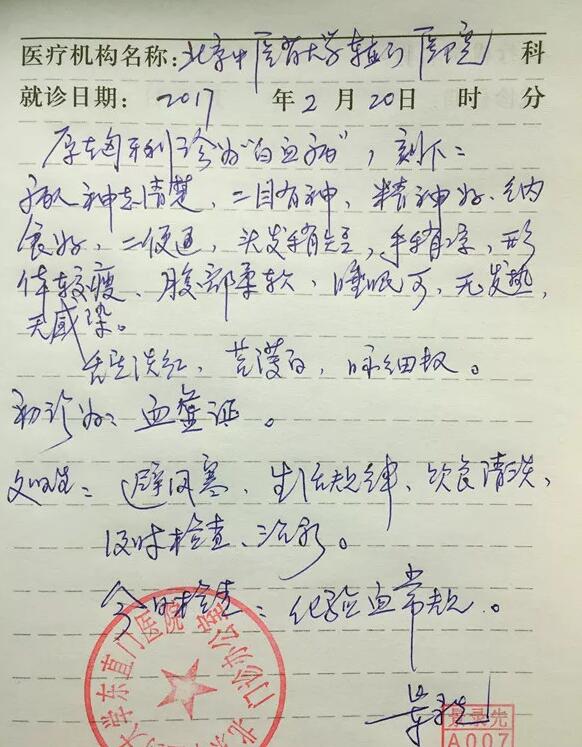 医疗机构名称:北京中医药大学东直门医院 科
就诊日期: 2017 年 2 月 20 日 时 分
原在匈牙利诊为“白血病”,刻下:
病人神志清楚,二目有神,精神好,纳
食好,二便通,头发稍短,手稍凉,形
体较瘦、腹部柔软,睡眠可,无发热,
无感染。
舌质淡红,苔薄白,脉细
初诊为:血虚证。
避风寒、生活规律、饮食清淡,
及时检查、治疗。
今时检查:化验血常规。
大学东直门医院
门诊办公室
A007